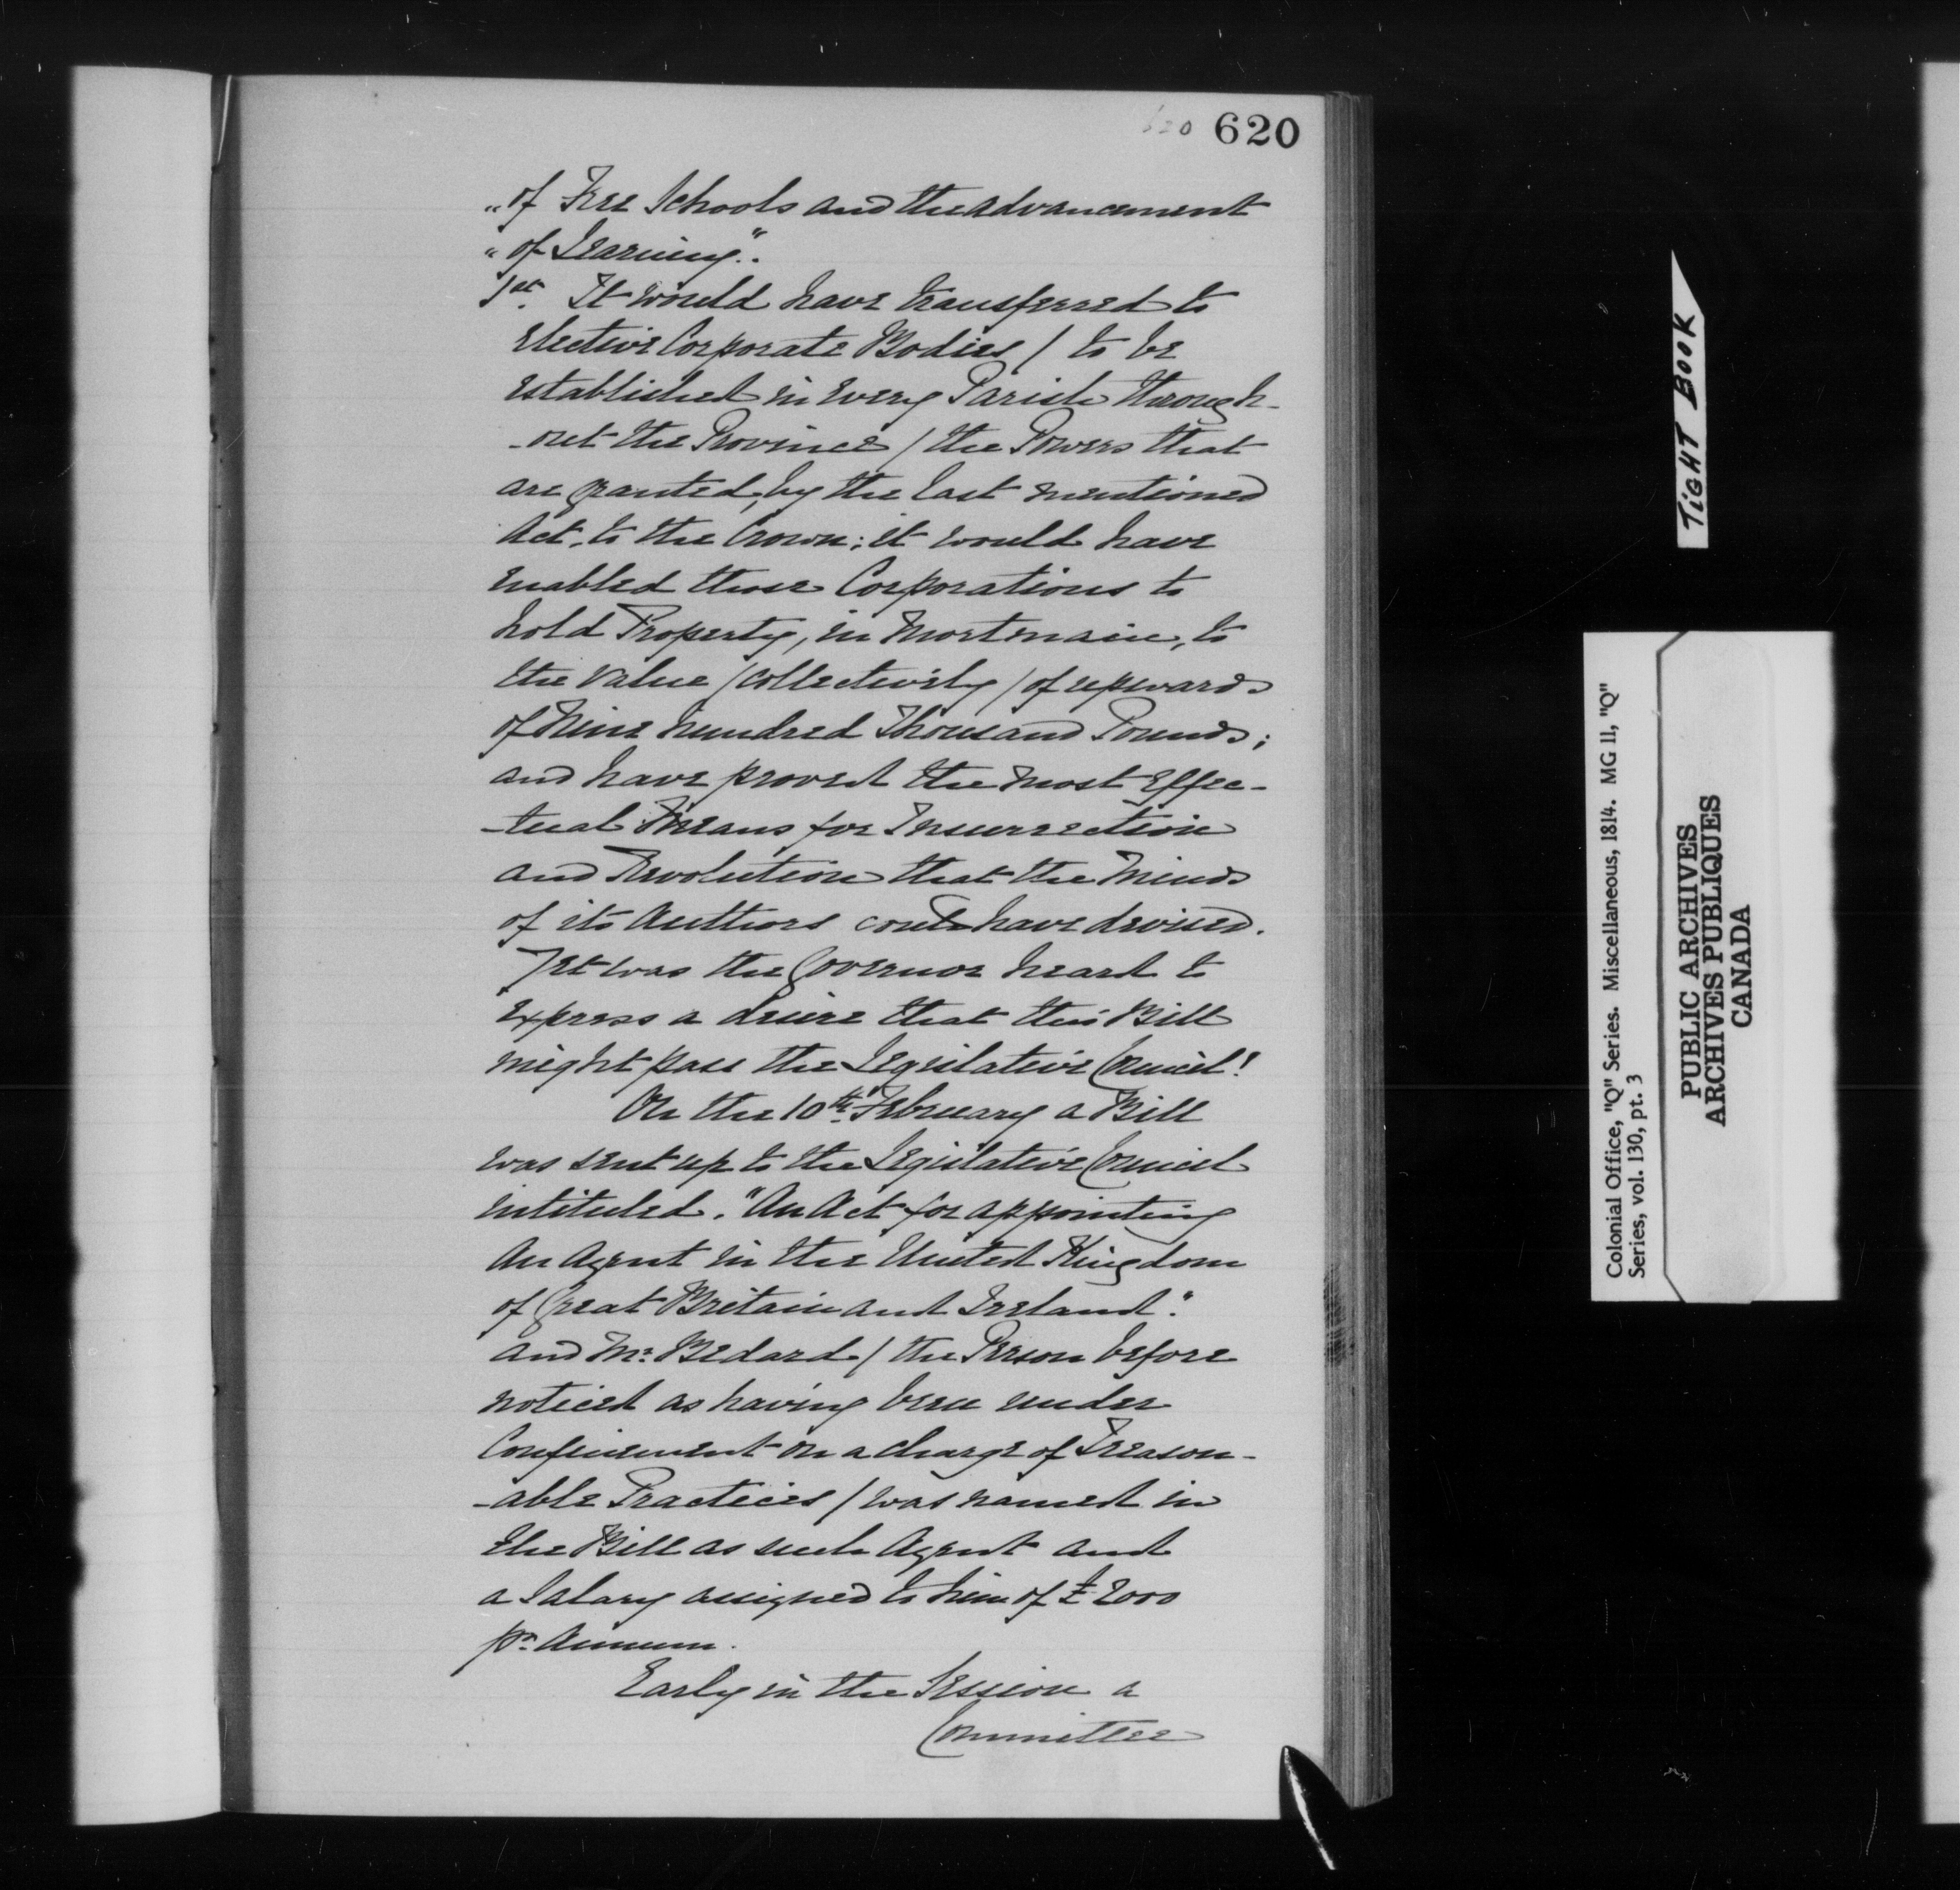 620 620
"of Free Schools and the advancement
"of Learning".
1st. It would have transferred to
Elective Corporate Bodies / to be
established in every Parish through-
-out the Province / the Powers that
are granted, by the last mentioned
Act, to the Crown; it would have
enabled those Corporations to
hold Property, in Mortmain, to
the value / collectively / of upwards
of Nine hundred Thousand Pounds;
and have proved the most Effec-
-tual Means for Insurrection
and Revolution that the Minds
of its Authors could have devised.
Yet was the Governor heard to
express a desire that this Bill
might pass the Legislative Council!
On the 10th February a Bill
was sent up to the Legislative Council
intituled. "An Act for appointing
An Agent in the United Kingdom
of Great Britain and Ireland".
and Mr. Bedard / the Person before
noticed as having been under
Confinement on a charge of Treason-
-able Practices / was named in
the Bill as such Agent and
a Salary assigned to him of £2000
pr. Annum.
Early in the Session a
Committee
TIGHT BOOK
Colonial Office, "Q" Series. Miscellaneous, 1814. MG 11, "Q"
Series, vol. 130, pt. 3
PUBLIC ARCHIVES
ARCHIVES PUBLIQUES
CANADA